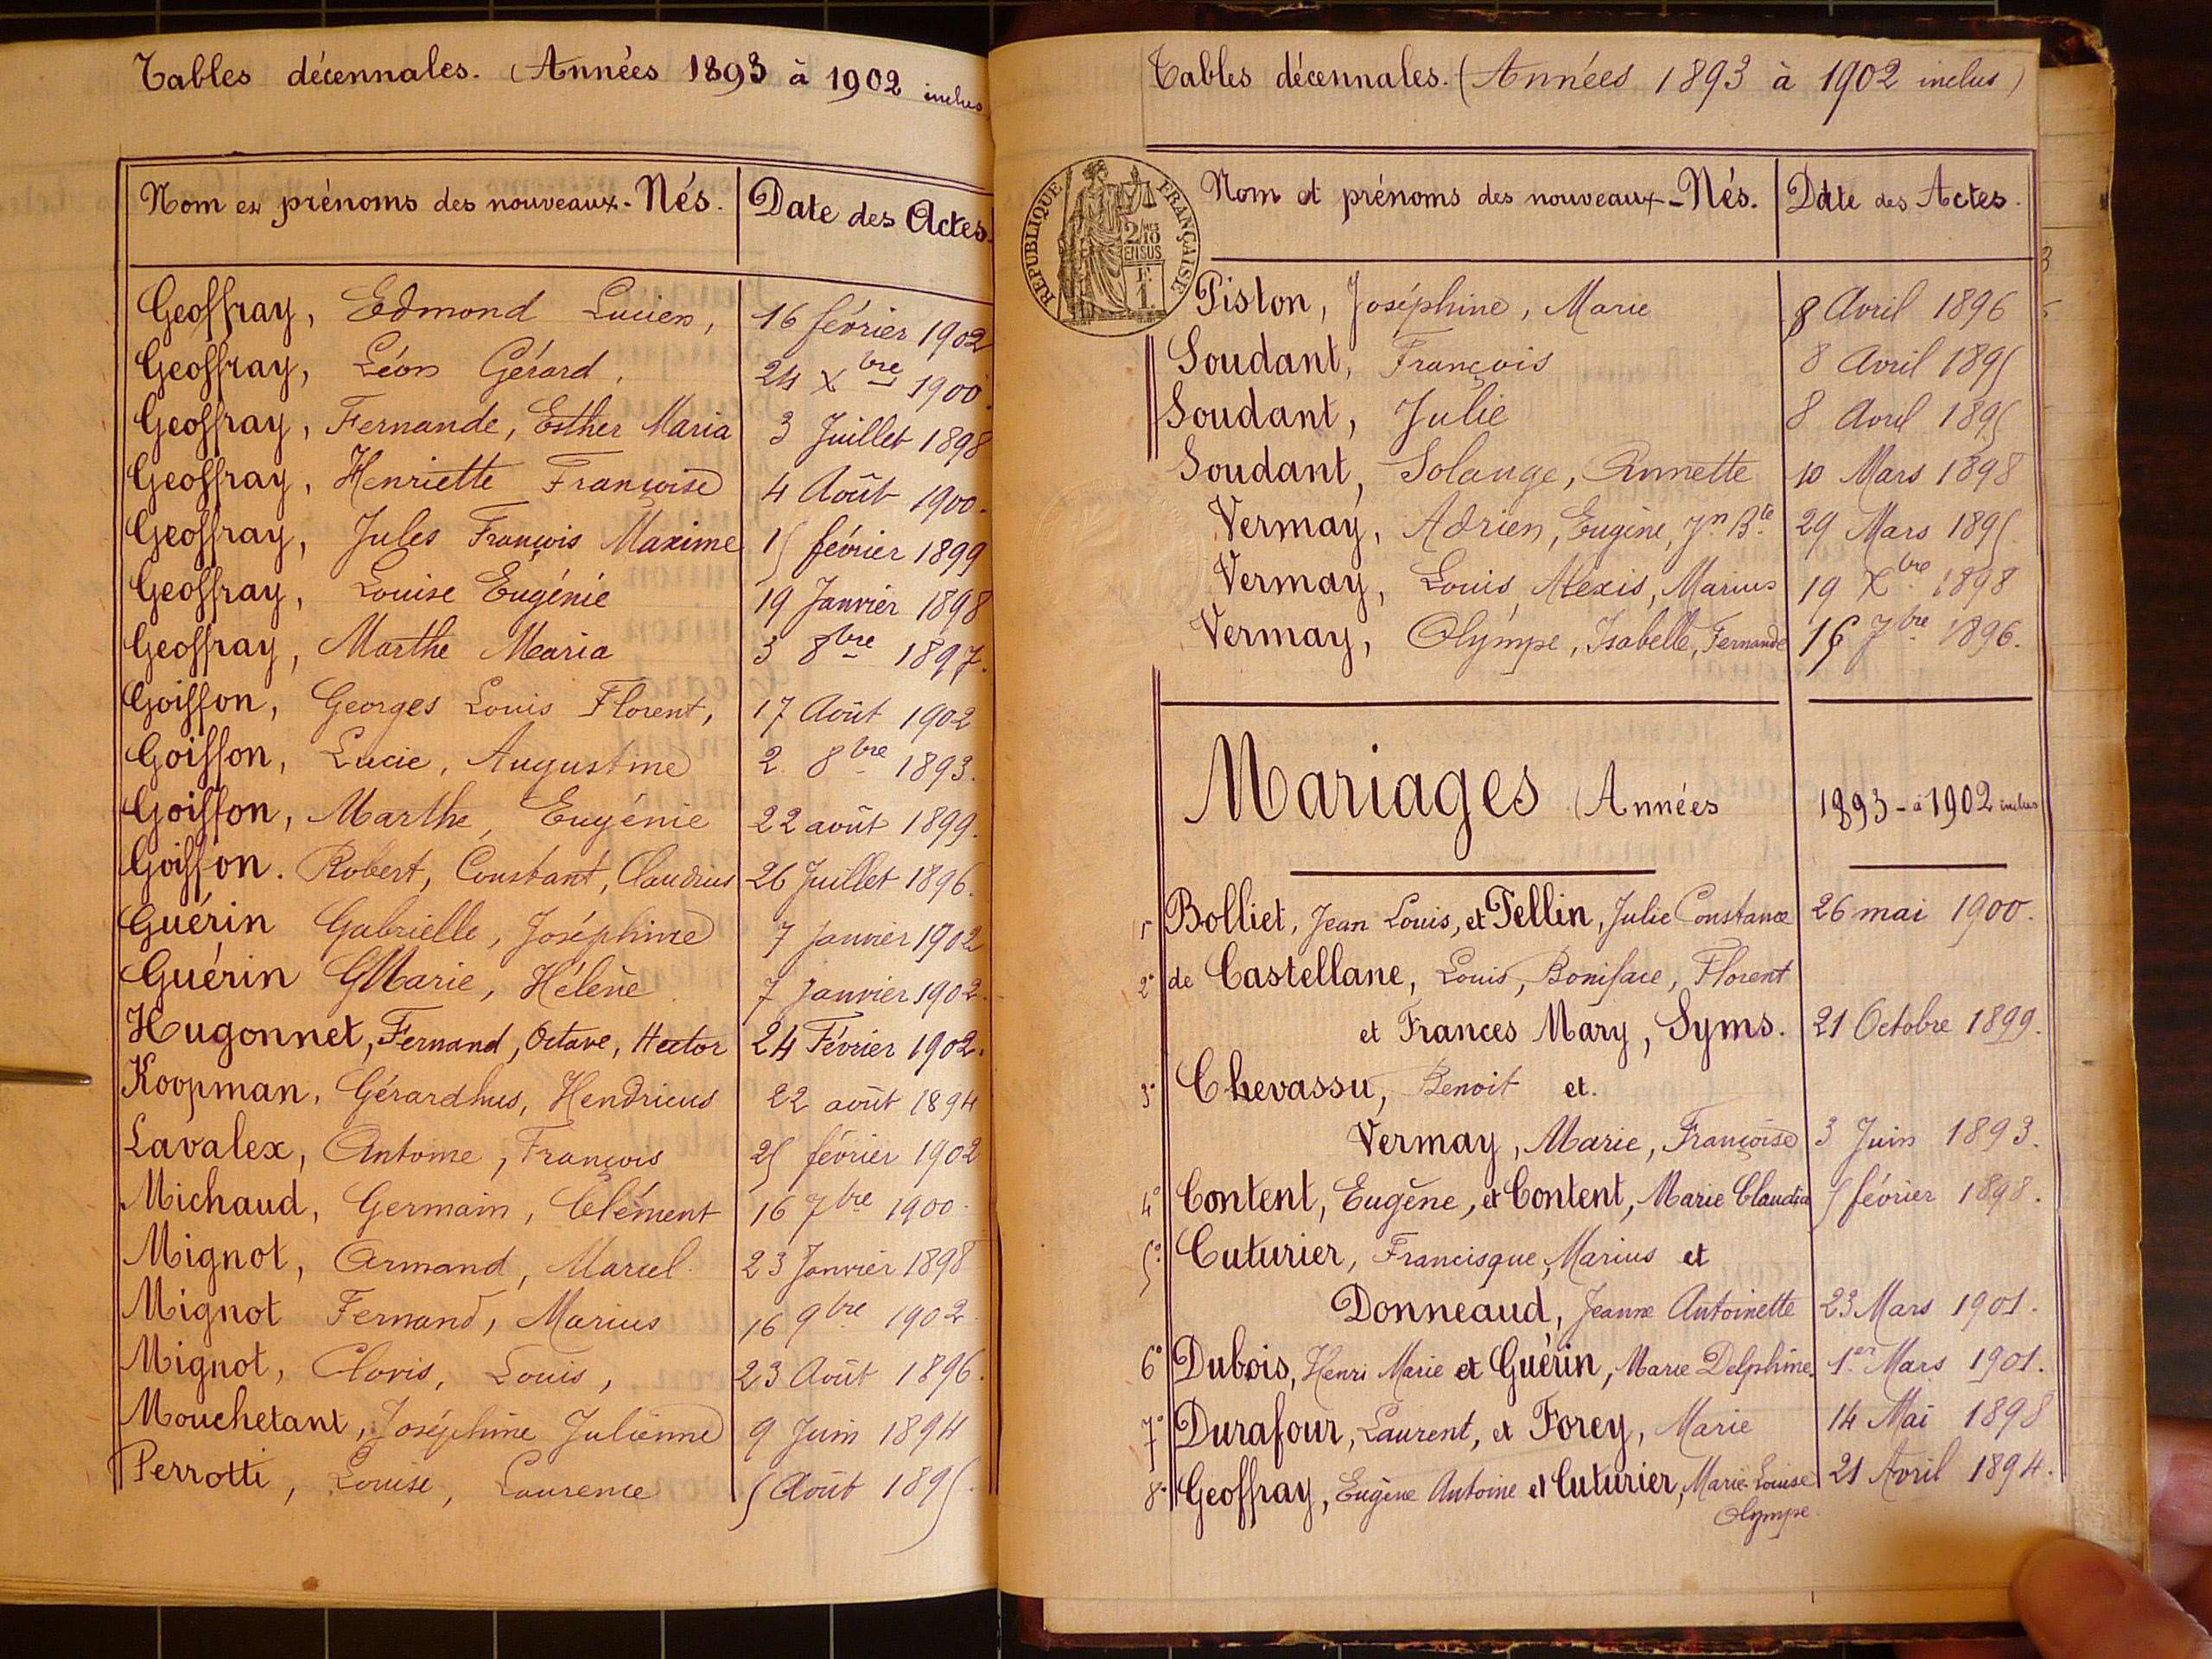 Tables décennales. (Années 1893 à 1902 inclus
Nom et prénoms des nouveaux-Nés. Date des Actes.
Geoffray, Edmond Lucien, 16 février 1902
Geoffray, Léon Gérard, 24 Xbre 1900
Geoffray, Fernande, Esther Maria 3 Juillet 1898
Geoffray, Henriette Françoise 4 Août 1900.
Geoffray, Jules François Maxime 15 février 1899
Geoffray, Louise Eugénie 19 Janvier 1898
Geoffray, Marthe Maria 3 8bre 1897.
Goiffon, Georges Louis Florent, 17 Août 1902
Goiffon, Lucie, Augustine 2 8bre 1893.
Goiffon, Marthe, Eugénie 22 août 1899.
Goiffon. Robert, Constant, Claudius 26 Juillet 1896.
Guérin Gabrielle, Joséphine 7 Janvier 1902
Guérin Marie, Hélène 7 Janvier 1902.
Hugonnet, Fernand, Octave, Hector 24 Février 1902.
Koopman, Gérardhus, Hendricus 22 août 1894
Lavalex, Antoine, François 25 février 1902
Michaud, Germain, Clément 16 7bre 1900.
Mignot, Armand, Marcel. 23 Janvier 1898
Mignot Fernand, Marius 16 9bre 1902
Mignot, Clovis, Louis, 23 Août 1896.
Mouchetant, Joséphine Julienne 9 Juin 1894
Perrotti, Louise, Laurence 5 Août 1895.
Tables décennales. (Années 1893 à 1902 inclus)
REPUBLIQUE FRANÇAISE
2/10
EN SUS
1F.
Nom et prénoms des nouveaux-Nés. Date des Actes.
Piston, Joséphine, Marie 8 Avril 1896
Soudant, François 8 Avril 1895
Soudant, Julie 8 Avril 1895
Soudant, Solange, Annette 10 Mars 1898
Vermay, Adrien, Eugène, Jn Bte 29 Mars 1895.
Vermay, Louis, Alexis, Marius 19 Xbre 1898
Vermay, Olympe, Isabelle, Fernande 15 7bre 1896.
Mariages (Années 1893 - à 1902 inclus
1° Bolliet, Jean Louis, et Tellin, Julie Constance 26 mai 1900.
2° de Castellane, Louis, Boniface, Florent
et Frances Mary, Syms. 21 Octobre 1899.
3° Chevassu, Benoit et.
Vermay, Marie, Françoise 3 Juin 1893.
4° Content, Eugène, et Content, Marie Claudia 5 février 1898.
5° Cuturier, Francisque, Marius et
Donneaud, Jeanne Antoinette 23 Mars 1901.
6° Dubois, Henri Marie et Guérin, Marie Delphine. 1er Mars 1901.
7° Durafour, Laurent, et Forey, Marie 14 Mai 1898
8° Geoffray, Eugène Antoine et Cuturier, Marie-Louise 21 Avril 1894.
Olympe.